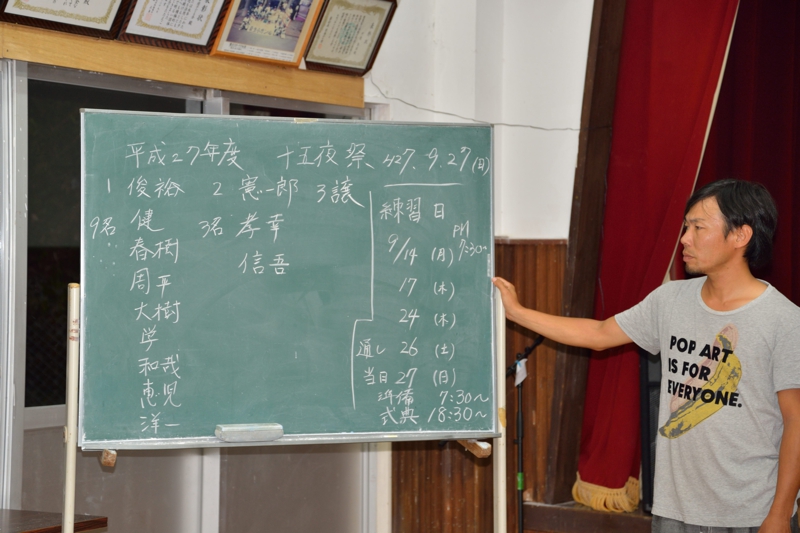 平成27年度 十五夜祭 H27.9.27(日)
1 俊裕 2 憲一郎 3 譲
9名 健 3名 孝幸
春樹 信吾
周平
大樹
学
和哉
恵児
洋一
練習日
PM
9/14(月) 7:30~
17(木)
24(木)
通し 26(土)
当日 27(日)
準備 7:30~
式典 18:30~
POP ART
IS FOR
EVERYONE.